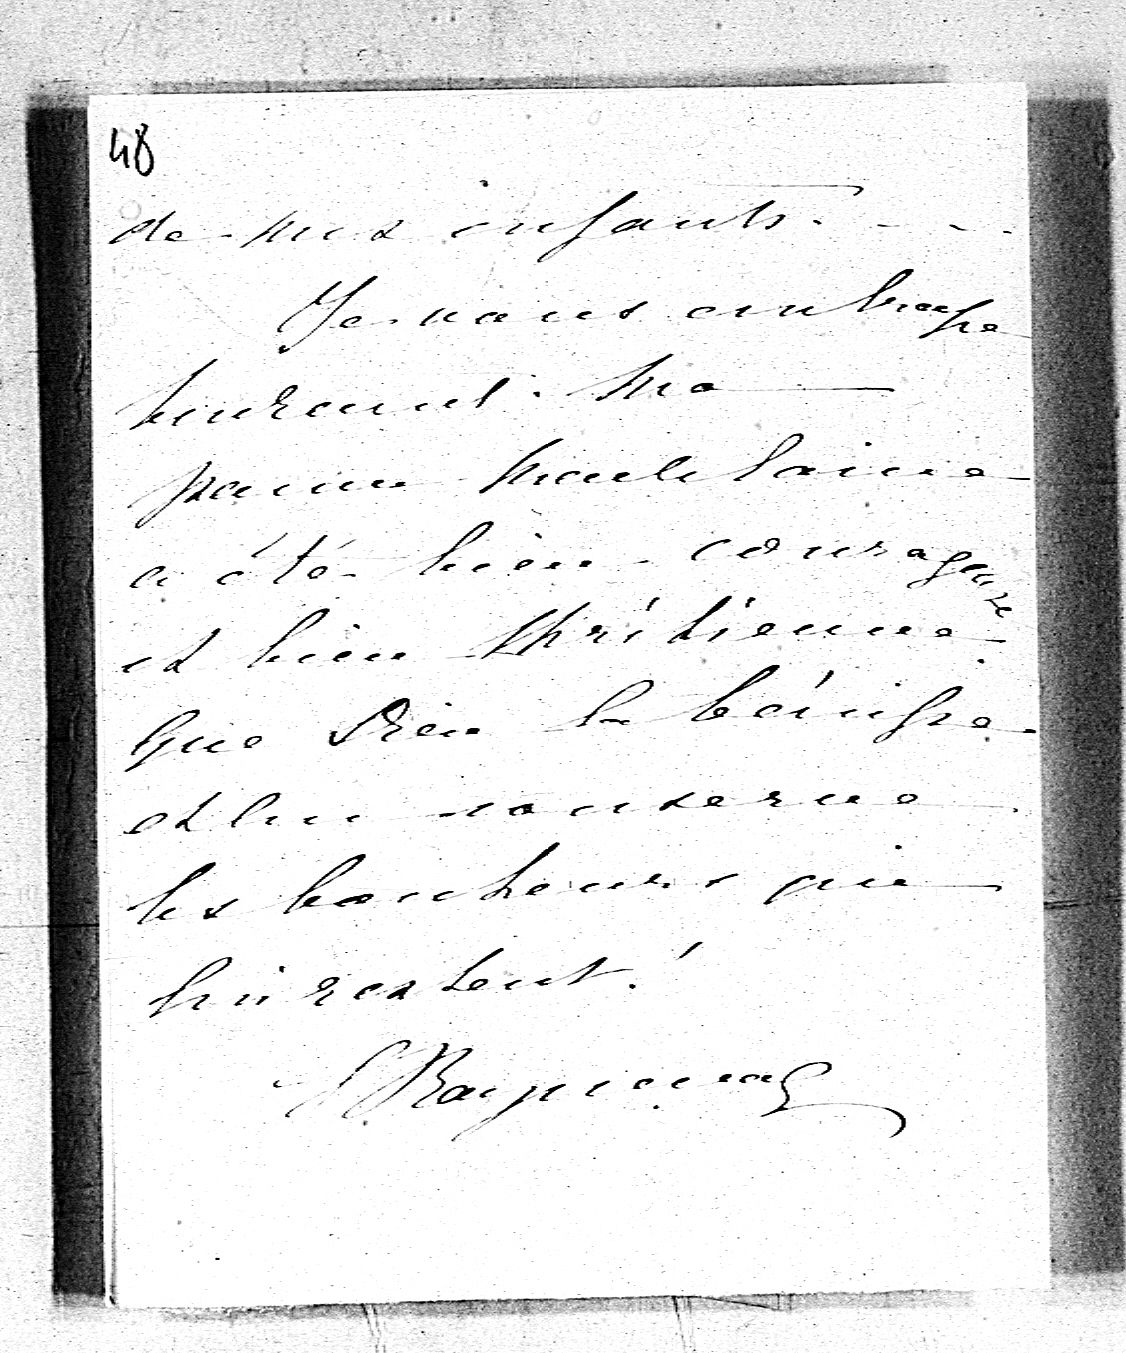 48
de mes enfants. - - -
Je vous embrasse
tendrement. Ma
pauvre Madeleine
a été bien courageuse
et bien chrétienne.
Que Dieu la bénisse
et lui conserve
les bonheurs qui
lui restent!
Raymond